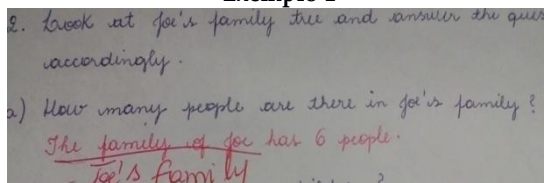 2. Look at Joe's family tree and answer the ques
accordingly.
a) How many people are there in Joe's family?
The family of Joe has 6 people.
Joe's family